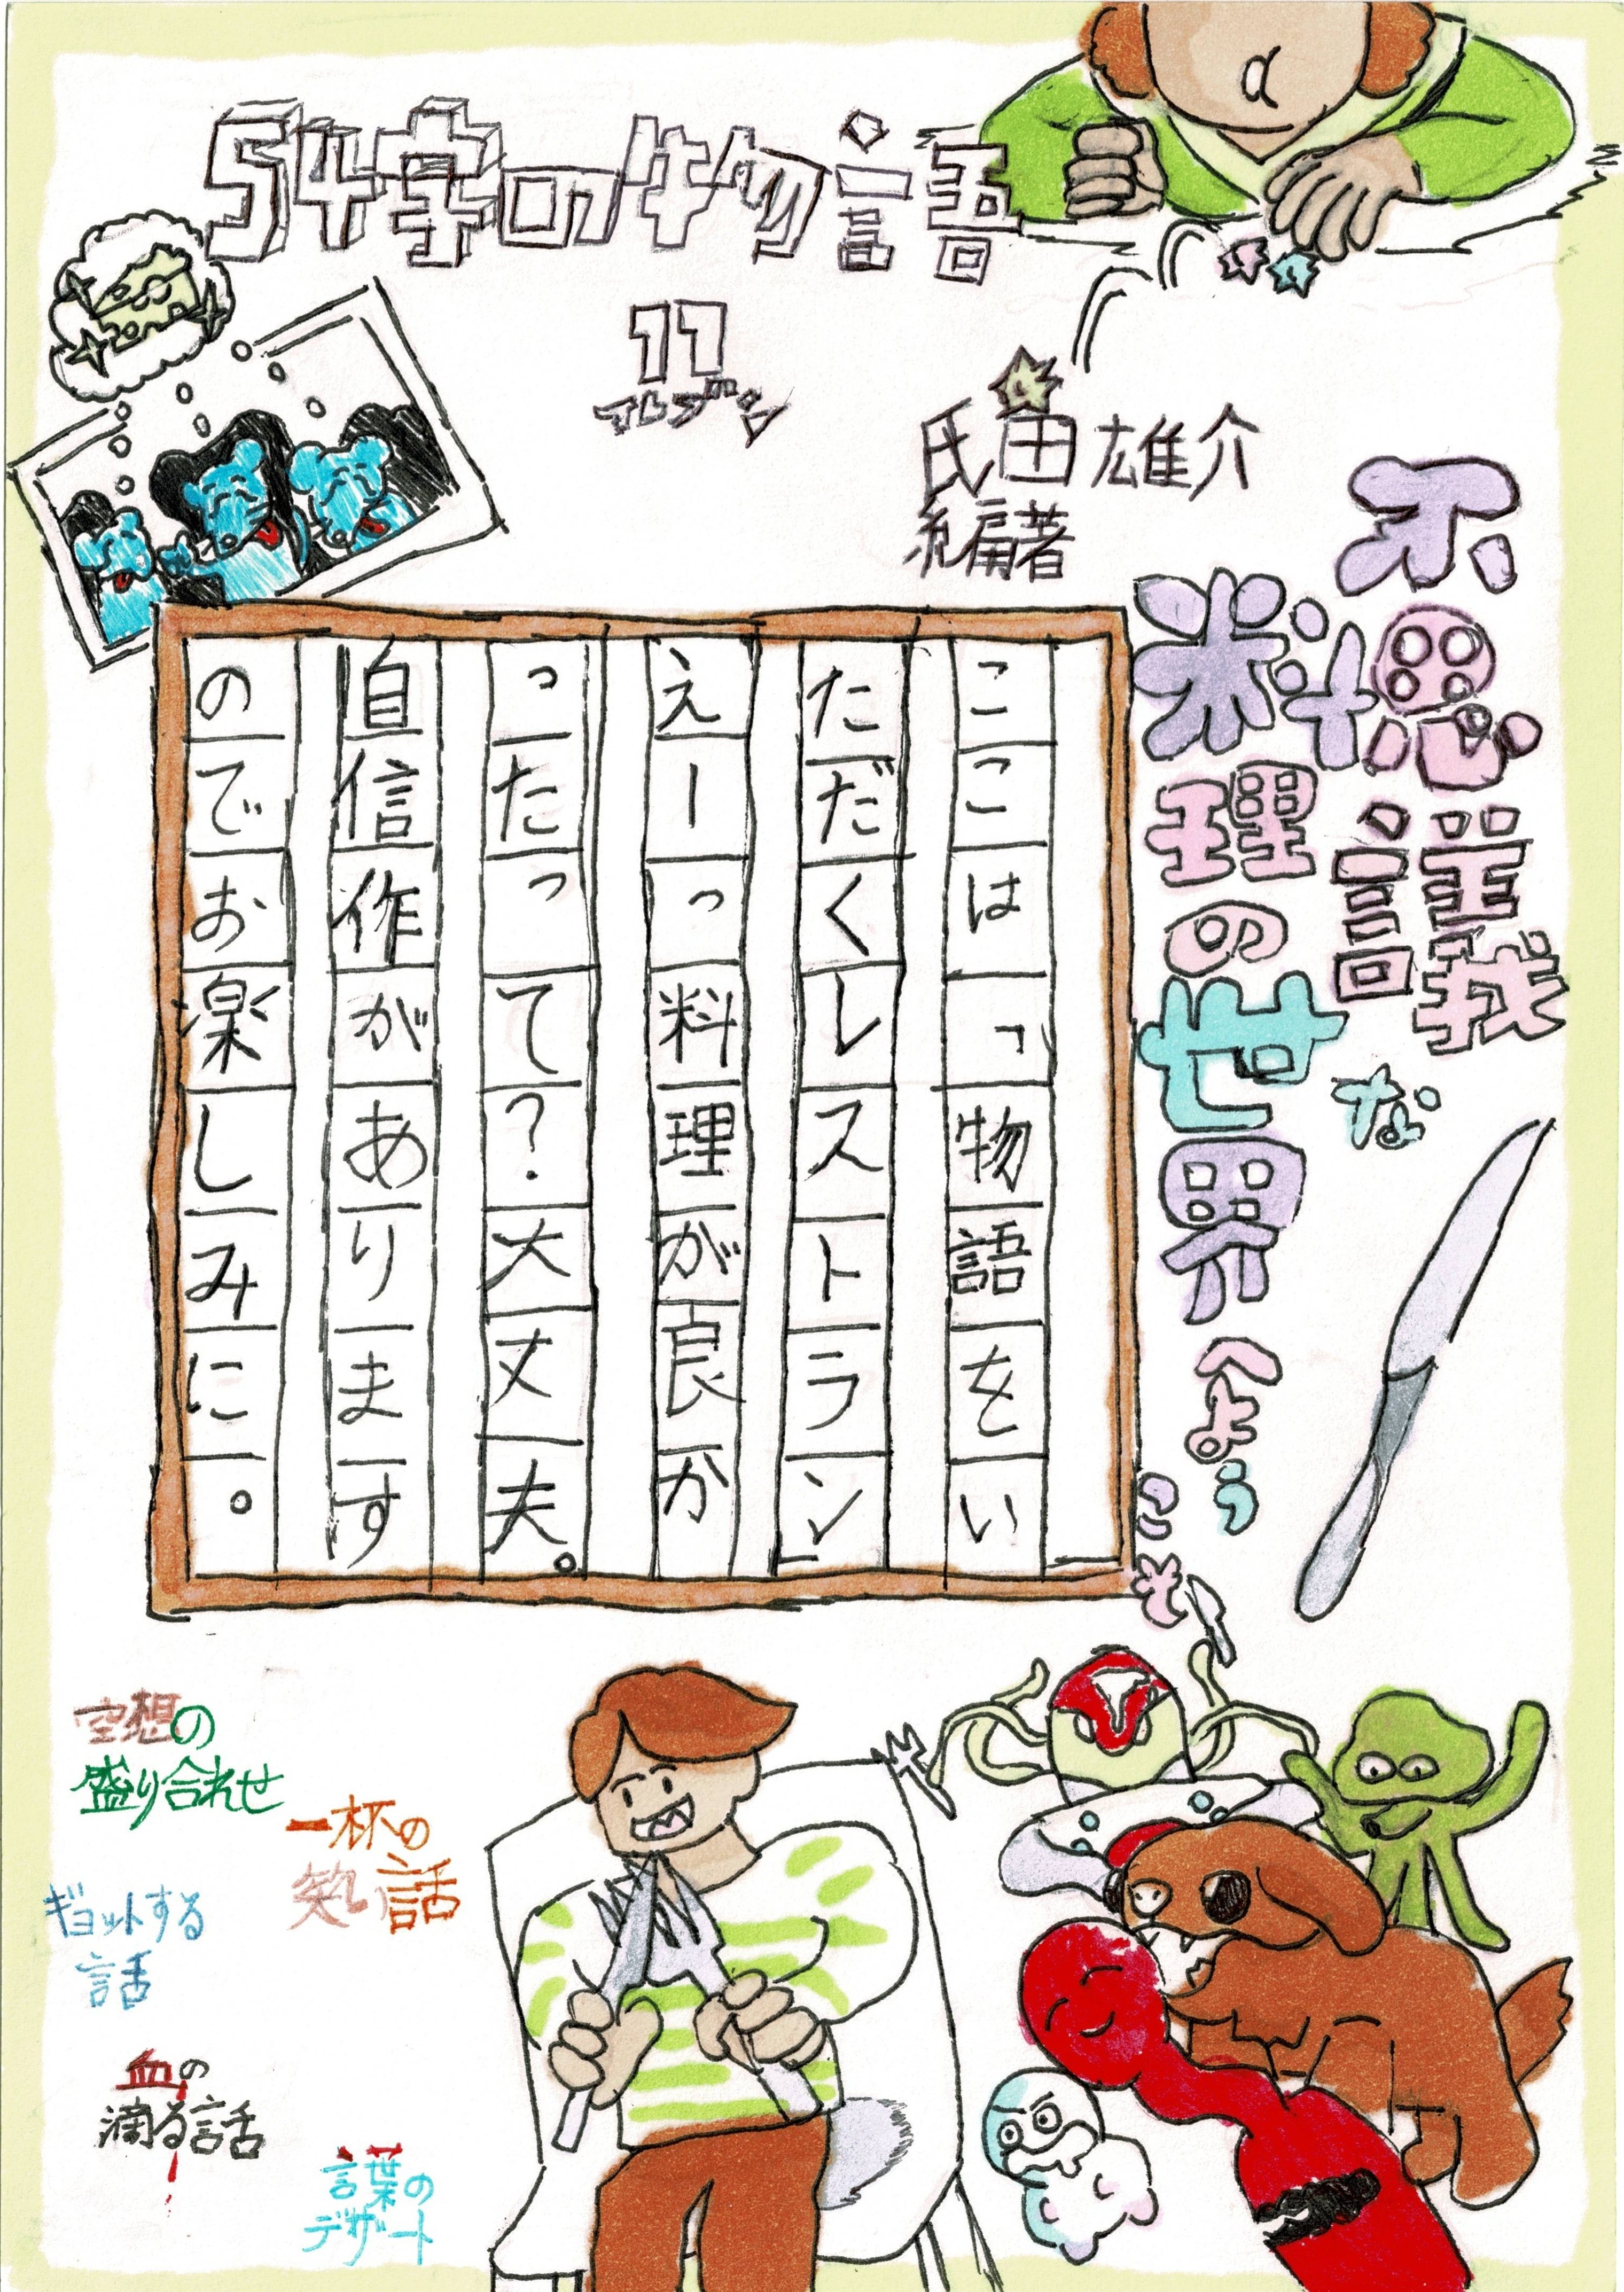 54字の物語
11
イレブン
氏田雄介
編著
不思議な
料理の世界へようこそ
ここは「物語をい
ただくレストラン」
えーっ料理が良か
ったって?大丈夫。
自信作があります
のでお楽しみに。
空想の
盛り合わせ
一杯の
笑い話
ギョットする
話
血の
滴る話
言葉の
デザート